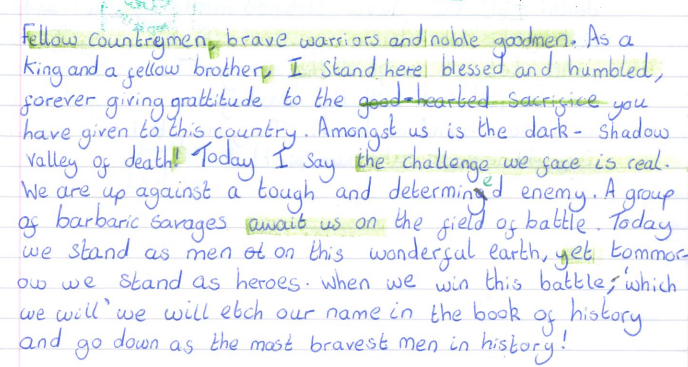 Fellow countreymen, brave warriors and noble goodmen. As a
King and a fellow brother, I stand here blessed and humbled,
forever giving grattitude to the good-hearted sacrifice you
have given to this country. Amongst us is the dark-shadow
valley of death! Today I say the challenge we face is real.
We are up against a tough and determined enemy. A group
of barbaric savages await us on the field of battle. Today
we stand as men ot on this wonderful earth, yet tommor-
ow we stand as heroes. When we win this battle, 'which
we will' we will etch our name in the book of history
and go down as the most bravest men in history!